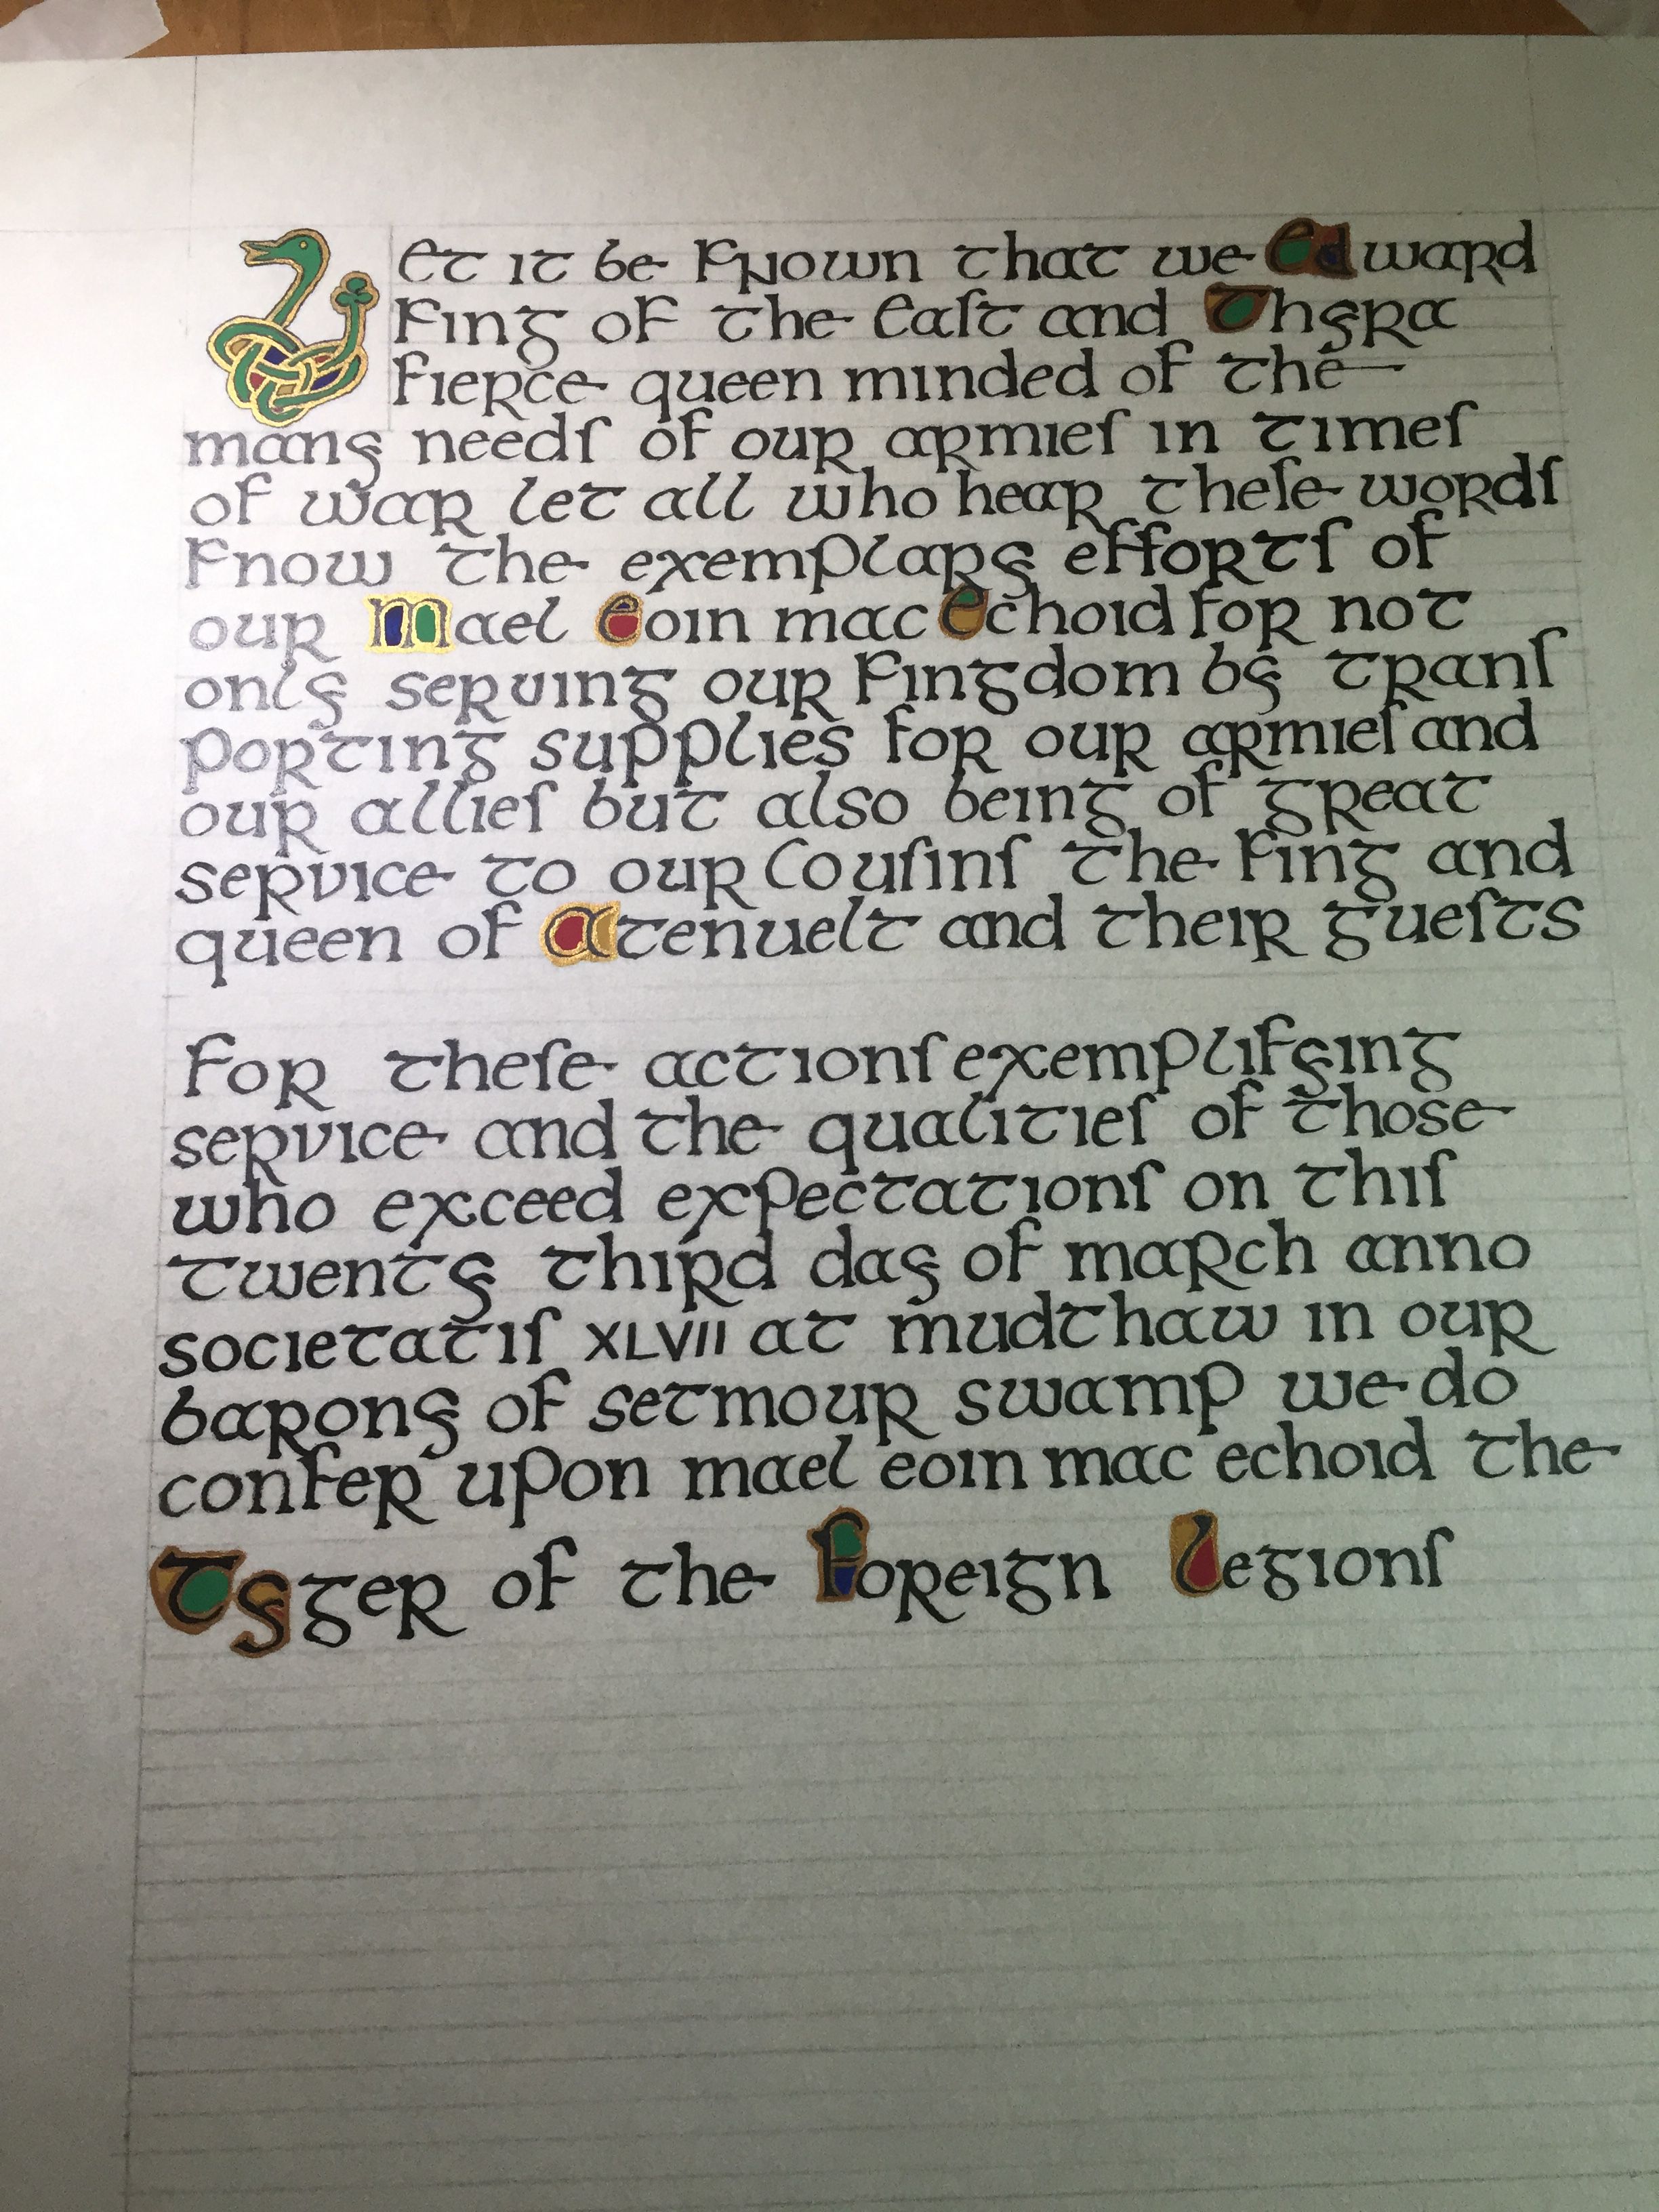 Let it be known that we Edward
King of the East and Thyra
fierce queen minded of the
many needs of our armies in times
of war let all who hear these words
know the exemplary efforts of
our Mael Eoin mac Echoid for not
only serving our kingdom by trans
porting supplies for our armies and
our allies but also being of great
service to our Cousins the King and
queen of Atenuelt and their guests
For these actions exemplifying
service and the qualities of those
who exceed expectations on this
twenty third day of march anno
societatis XLVII at mudthaw in our
barony of setmour swamp we do
confer upon mael eoin mac echoid the
Tyger of the Foreign Legions